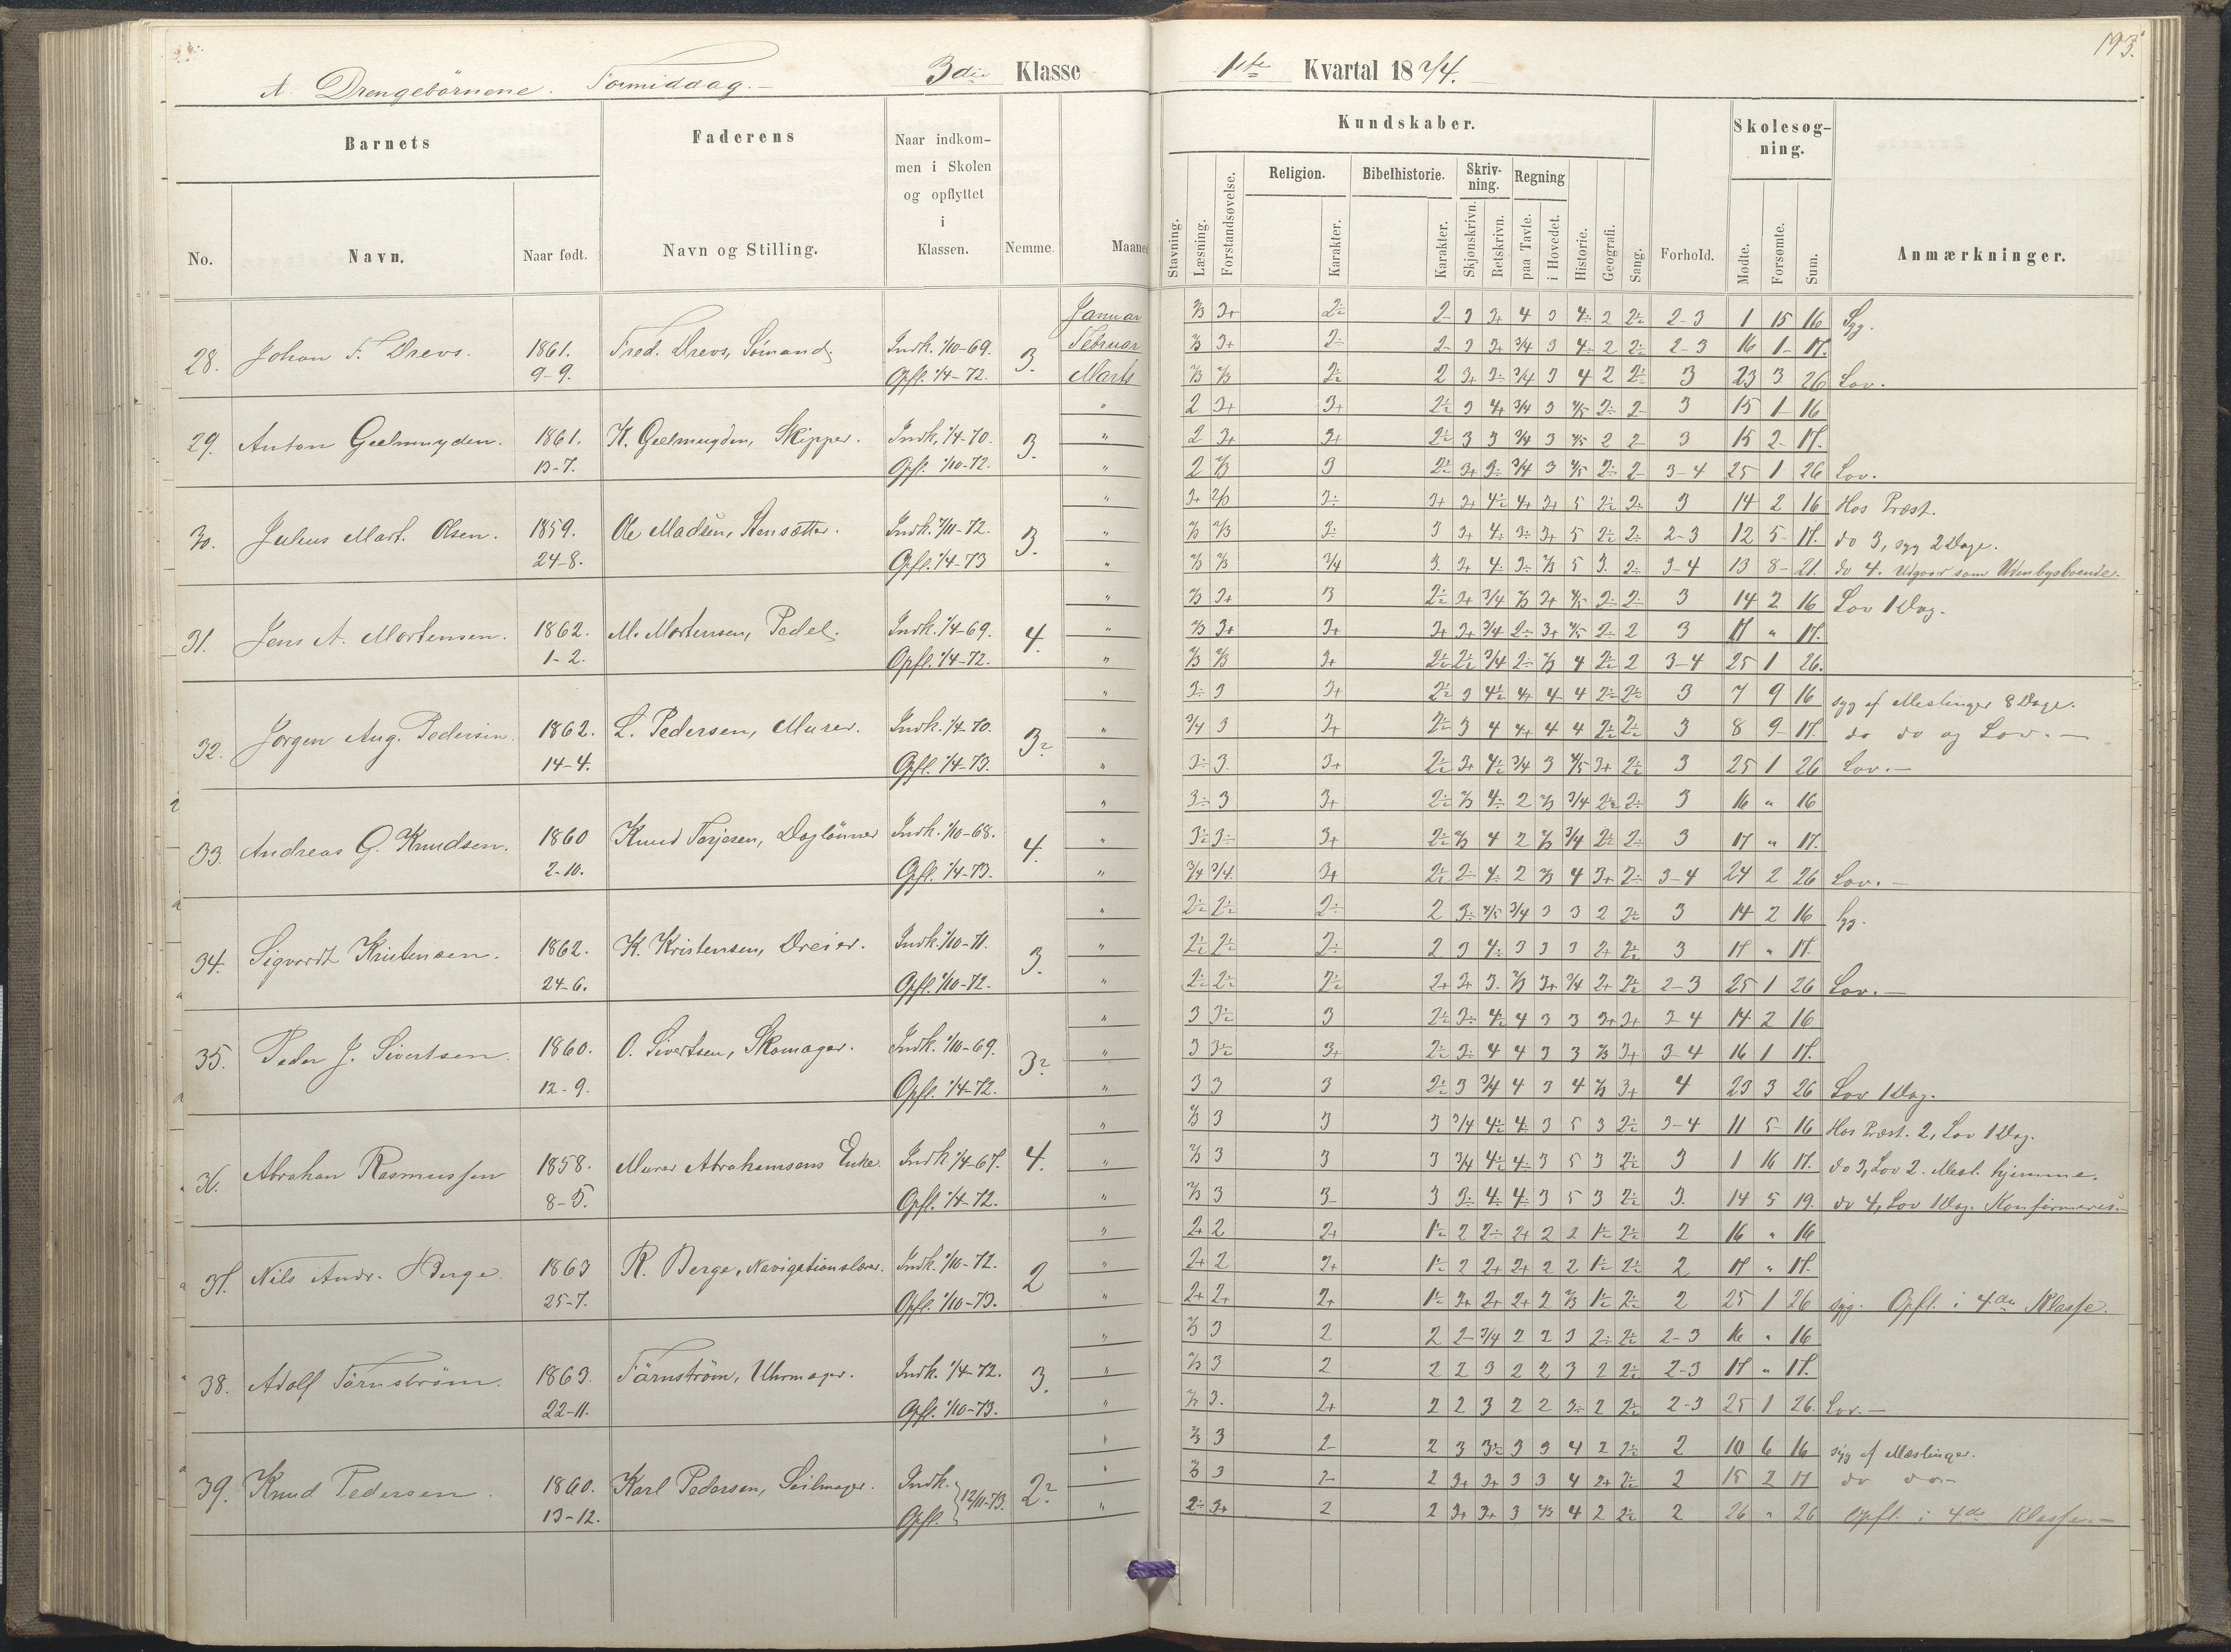 193.
A. Drengebörnene. Formiddag.
3die Klasse
1ste Kvartal 18 7/4.
Barnets
Faderens
Naar indkommen i Skolen og opflyttet i Klassen.
Nemme.
Maaned
Kundskaber.
Skolesogning.
No.
Navn.
Naar født.
Navn og Stilling.
Stavning.
Læsning.
Forstandsøvelse.
Religion.
Karakter.
Bibelhistorie.
Karakter.
Skrivning.
Skjønskrivn.
Retskrivn.
Regning
paa Tavle.
i Hovedet.
Historie.
Geografi.
Sang.
Forhold.
Mødte.
Forsømte.
Sum.
Anmærkninger.
28. Johan F. Drevs. 1861. 9-9. Fred. Drevs, Sömand. Indk. 1/10-69. Opfl. 1/4-72. 3.
Januar 2/3 3+ 2÷ 2- 3 3+ 4 3 4÷ 2 2÷ 2-3 1 15 16 Syg.
Februar 2/3 3+ 2÷ 2- 3 3+ 3/4 3 4÷ 2 2÷ 2-3 16 1 17.
Marts 2/3 2/3 2÷ 2 3+ 3÷ 3/4 3 4 2 2÷ 3 23 3 26 Lov.
29. Anton Geelmuyden. 1861. 13-7. K. Geelmuyden, Skipper. Indk. 1/4-70. Opfl. 1/10-72. 3.
" 2 3+ 3+ 2÷ 3 4+ 3/4 3 4/5 2÷ 2- 3 15 1 16
" 2 3+ 3+ 2÷ 3 3 3/4 3 4/5 2 2- 3 15 2 17.
" 2 2/3 3 2÷ 3+ 3÷ 3/4 3 4/5 2÷ 2- 3-4 25 1 26 Lov.
30. Julius Mart. Olsen. 1859. 24-8. Ole Madsen, Stensætter. Indk. 7/11-72. Opfl. 1/4-73 3.
" 3+ 2/3 3÷ 3+ 3+ 4÷ 4+ 3+ 5 2÷ 2÷ 3 14 2 16 Hos Præst.
" 2/3 2/3 3÷ 3 3+ 4÷ 3÷ 3+ 5 2÷ 2÷ 2-3 12 5 17. do 3, syg 2 Dage.
" 2/3 2/3 3/4 3. 3+ 4÷ 3÷ 2/3 5 3. 2÷ 3-4 13 8 21. do 4. Udgaar som Udenbysboende.
31. Jens A. Mortensen. 1862. 1-2. M. Mortensen, Pedel. Indk. 1/4-69. Opfl. 1/4-72. 4.
" 2/3 3+ 3 2÷ 3+ 3/4 2/3 3+ 4/5 2÷ 2÷ 3 14 2 16 Lov 1 Dag.
" 2/3 3+ 3+ 3+ 3+ 3/4 2÷ 3+ 4/5 2÷ 2 3 17 " 17.
" 2/3 2/3 3+ 2÷ 2÷ 3/4 2÷ 2/3 4 2÷ 2 3-4 25 1 26.
32. Jørgen Aug. Pedersen. 1862. 14-4. L. Pedersen, Murer. Indk. 1/4-70. Opfl. 1/4-73. 3÷
" 3÷ 3 3+ 2÷ 3 4÷ 4+ 4 4 2÷ 2÷ 3 7 9 16 syg af Meslinger 8 Dage.
" 3/4 3 3+ 2÷ 3 4 4+ 4 4 2÷ 2÷ 3 8 9 17. do do og Lov.
" 3÷ 3 3+ 2÷ 3+ 4÷ 3/4 3 4/5 3+ 2÷ 3 25 1 26 Lov.
33. Andreas G. Knudsen. 1860 2-10. Knud Torjesen, Daglönner Indk. 1/10-68. Opfl. 1/4-73. 4.
" 3÷ 3 3+ 2÷ 2/3 4÷ 2 2/3 3/4 2÷ 2÷ 3 16 " 16
" 3÷ 3÷ 3+ 2÷ 2/3 4 2 2/3 3/4 2÷ 2÷ 3 17 " 17.
" 3/4 3/4 3+ 2÷ 2÷ 4÷ 2 2/3 4 3+ 2÷ 3-4 24 2 26 Lov.
34. Sigvardt Kristensen. 1862. 24-6. K. Kristensen, Dreier. Indk. 1/10-71. Opfl. 1/10-72. 3.
" 2÷ 2÷ 2÷ 2 3÷ 4/5 3/4 3 3 2 2÷ 3 14 2 16 Syg.
" 2÷ 2÷ 2÷ 2 3 4÷ 3 3 3 2+ 2÷ 3 17 " 17.
" 2÷ 2÷ 2÷ 2+ 3+ 3. 2/3 3+ 3/4 2+ 2÷ 2-3 25 1 26 Lov.
35. Peder J. Sivertsen. 1860. 12-9. O. Sivertsen, Skomager. Indk. 1/10-69. Opfl. 1/4-72. 3÷
" 3 3÷ 3 2÷ 3÷ 4÷ 4 3 3 3+ 3+ 3-4 14 2 16
" 3 3÷ 3+ 2÷ 3÷ 4 4 3 3 2/3 3+ 3-4 16 1 17.
" 3 3 3 2÷ 3 3/4 4 3 4 2/3 3+ 4 23 3 26 Lov 1 Dag.
36. Abraham Rasmussen 1858. 8-5. Murer Abrahamsens Enke. Indk. 1/4-67. Opfl. 1/4-72. 4.
" 2/3 3 3 3 3/4 4÷ 4÷ 3 5 3 2÷ 3-4 11 5 16 Hos Præst. 2, Lov 1 Dag.
" 2/3 3 3 3 3/4 4÷ 4÷ 3 5 3 2÷ 3 1 16 17. do 3, Lov 2. Mesl. hjemme.
" 2/3 3 3 3 3÷ 4÷ 4÷ 3 5 3 2÷ 3. 14 5 19. do 4, Lov 1 Dag. Konfirmeres.
37. Nils Andr. Berge. 1863 25-7. R. Berge, Navigationslærer. Indk. 1/10-72. Opfl. 1/10-73. 2
" 2+ 2 2+ 1÷ 2 2÷ 2+ 2 2 1÷ 2÷ 2 16 " 16
" 2+ 2 2+ 1÷ 2 2+ 2+ 2 2 1÷ 2÷ 2 17 " 17.
" 2+ 2+ 2+ 1÷ 2+ 2+ 2+ 2 2/3 1÷ 2÷ 2 25 1 26 syg. Opfl. i 4de Klasse.
38. Adolf Törnström. 1863. 22-11. Törnström, Uhrmager. Indk. 1/4-72. Opfl. 1/10-73. 3.
" 2/3 3 2 2 2- 3/4 2 2 3 2÷ 2÷ 2-3 16 " 16
" 2/3 3 2 2 2 3 2 2 3 2 2÷ 2-3 17 " 17.
" 2/3 3. 2+ 2 2 3 2 2 3÷ 2 2÷ 2-3 25 1 26. Lov.
39. Knud Pedersen. 1860. 13-12. Karl Pedersen, Seilmager. Indk. Opfl. } 12/11-73. 2÷
" 2/3 3 2- 2 3 3÷ 3 3 4 2 2÷ 2 10 6 16 syg af Mæslinger.
" 2/3 3 2- 2 3+ 3+ 3 3 4 2+ 2÷ 2 15 2 17 do do
" 2÷ 3+ 2 2 3+ 3+ 3 2/3 4 2 2÷ 2 26 " 26 Opfl. i 4de Klasse.